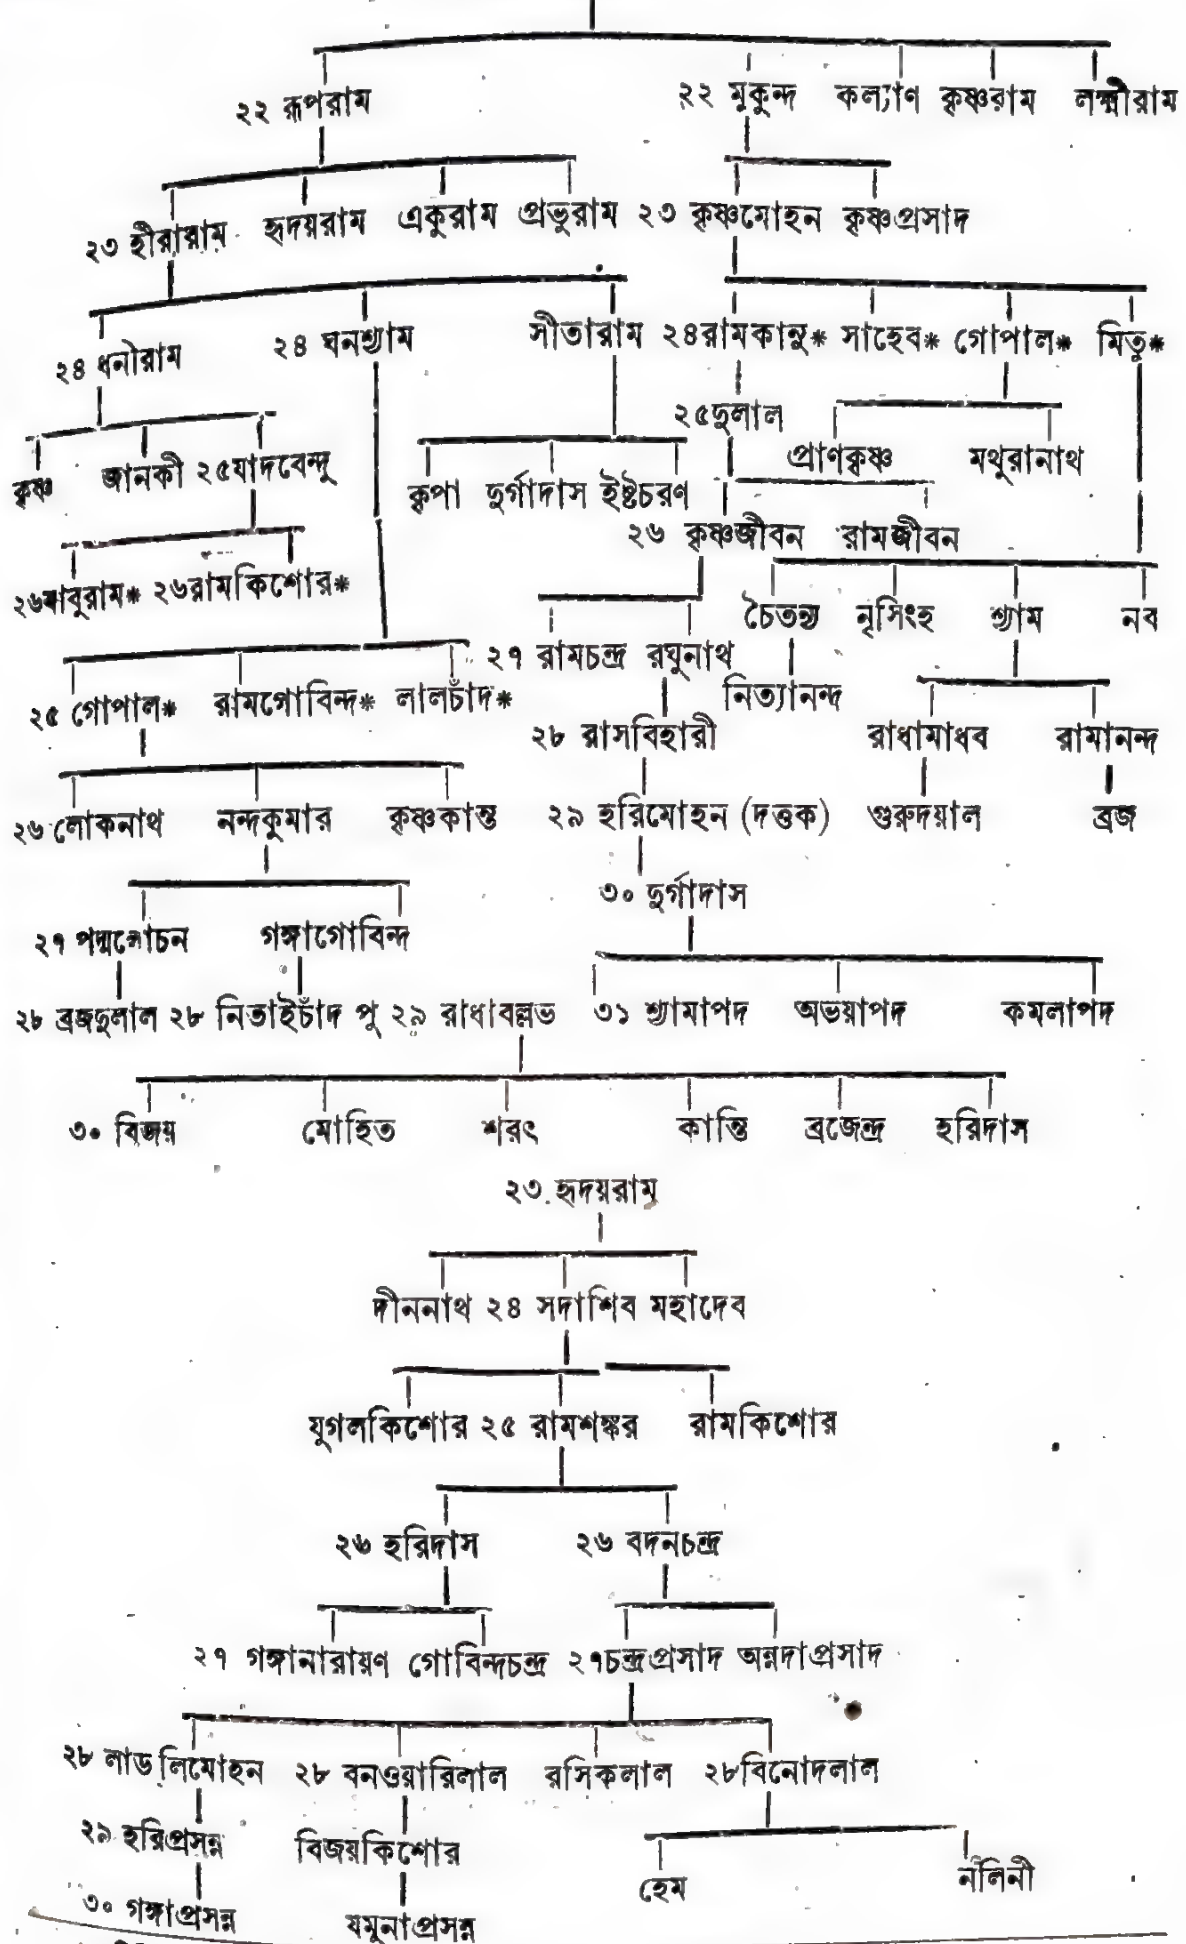 ২২ রূপরাম ২২ মুকুন্দ কল্যাণ কৃষ্ণরাম লক্ষ্মীরাম
২৩ হীরারাম হৃদয়রাম একুরাম প্রভুরাম ২৩ কৃষ্ণমোহন কৃষ্ণপ্রসাদ
২৪ ধনীরাম ২৪ ঘনশ্যাম সীতারাম ২৪রামকানু* সাহেব* গোপাল* মিতু*
২৫দুলাল
কৃষ্ণ জানকী ২৫যাদবেন্দু কৃপা দুর্গাদাস ইষ্টচরণ প্রাণকৃষ্ণ মথুরানাথ
২৬ কৃষ্ণজীবন রামজীবন
২৬বাবুরাম* ২৬রামকিশোর*
চৈতন্য নৃসিংহ শ্যাম নব
২৭ রামচন্দ্র রঘুনাথ
২৫ গোপাল* রামগোবিন্দ* লালচাঁদ* নিত্যানন্দ
২৮ রাসবিহারী রাধামাধব রামানন্দ
২৬ লোকনাথ নন্দকুমার কৃষ্ণকান্ত ২৯ হরিমোহন (দত্তক) গুরুদয়াল ব্রজ
৩০ দুর্গাদাস
২৭ পদ্মলোচন গঙ্গাগোবিন্দ
২৮ ব্রজদুলাল ২৮ নিতাইচাঁদ পু ২৯ রাধাবল্লভ ৩১ শ্যামাপদ অভয়াপদ কমলাপদ
৩০ বিজয় মোহিত শরৎ কান্তি ব্রজেন্দ্র হরিদাস
২৩. হৃদয়রাম
দীননাথ ২৪ সদাশিব মহাদেব
যুগলকিশোর ২৫ রামশঙ্কর রামকিশোর
২৬ হরিদাস ২৬ বদনচন্দ্র
২৭ গঙ্গানারায়ণ গোবিন্দচন্দ্র ২৭চন্দ্রপ্রসাদ অন্নদাপ্রসাদ
২৮ লাডলিমোহন ২৮ বনওয়ারিলাল রসিকলাল ২৮বিনোদলাল
২৯ হরিপ্রসন্ন বিজয়কিশোর হেম নলিনী
৩০ গঙ্গাপ্রসন্ন যমুনাপ্রসন্ন